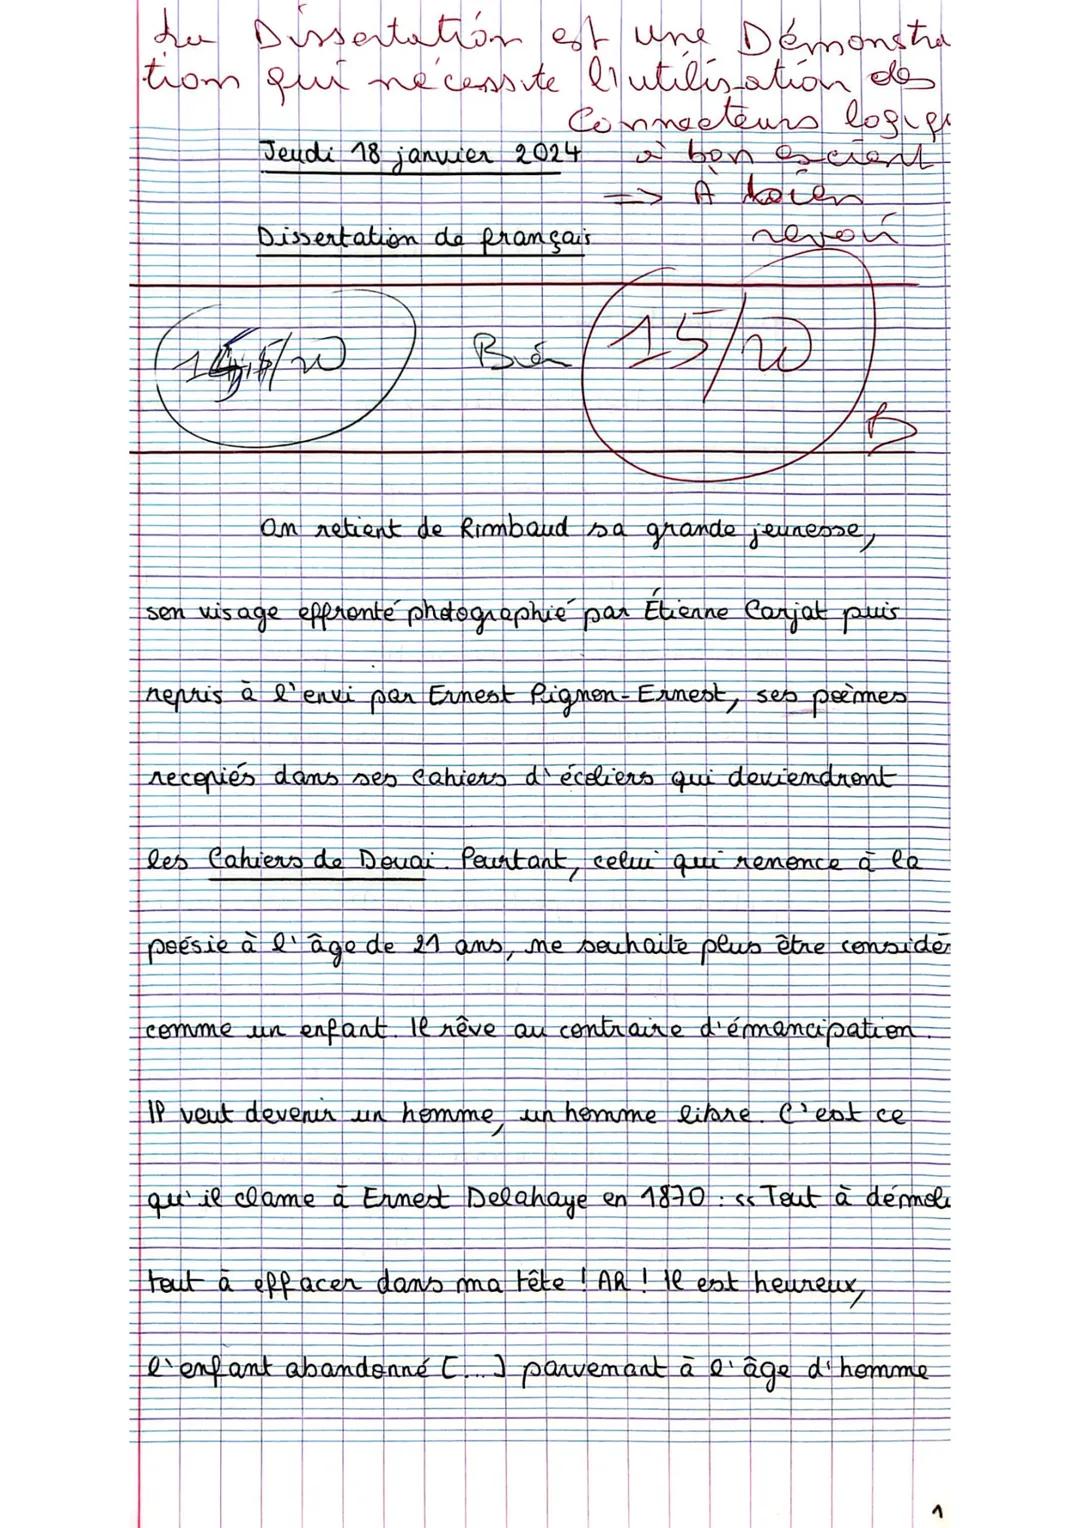 La Dissertation est une Démonstra
tion qui nécessite l'utilisation des
Connecteurs logiqu
à bon escient
=> À bien
revoir
Jeudi 18 janvier 2024
Dissertation de français
/20
Bien
15/20
B
On retient de Rimbaud sa grande jeunesse,
son visage effronté photographié par Étienne Carjat puis
repris à l'envi par Ernest Pignon-Ernest, ses poèmes
recopiés dans ses cahiers d'écoliers qui deviendront
les Cahiers de Douai. Pourtant, celui qui renonce à la
poésie à l'âge de 21 ans, ne souhaite plus être considér
comme un enfant. Il rêve au contraire d'émancipation.
Il veut devenir un homme, un homme libre. C'est ce
qu'il clame à Ernest Delahaye en 1870 : « Tout à démoli
tout à effacer dans ma tête ! Ah ! Il est heureux,
l'enfant abandonné [...] parvenant à l'âge d'homme
1